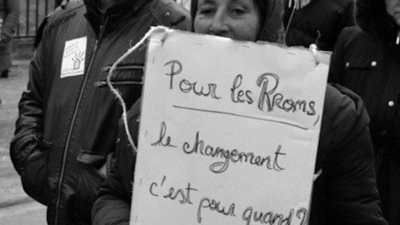 Pour les RRoms,
le changement
c'est pour quand?